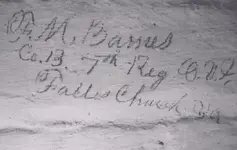 F. M. Barries
Co. B. 7th Reg O. V. I.
Falls Church Va